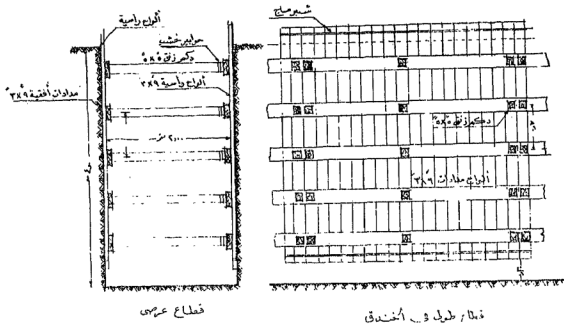 ألواح رأسية
خوابير خشب
دكم زنق ٥×٥
ألواح رأسية ٩×٣
مدادات أفقية ٩×٣
٢,٠٠ متر
قطاع عرضى
دكم زنق ٥×٥
ألواح مدادات ٩×٣
قطاع طولى فى الخندق